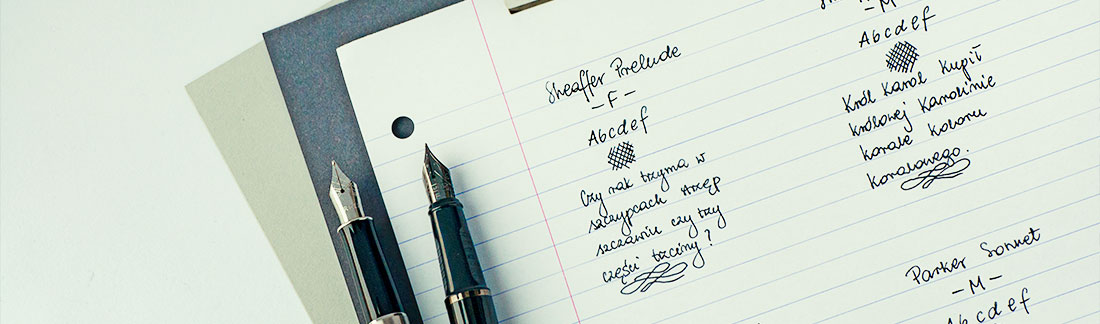 Sheaffer Prelude
– F –
Abcdef
Czy rak trzyma w
szczypcach strzęp
szczawiu czy trzy
części trzciny?
– M –
Abcdef
Król Karol kupił
królowej Karolinie
korale koloru
koralowego.
Parker Sonnet
– M –
Abcdef